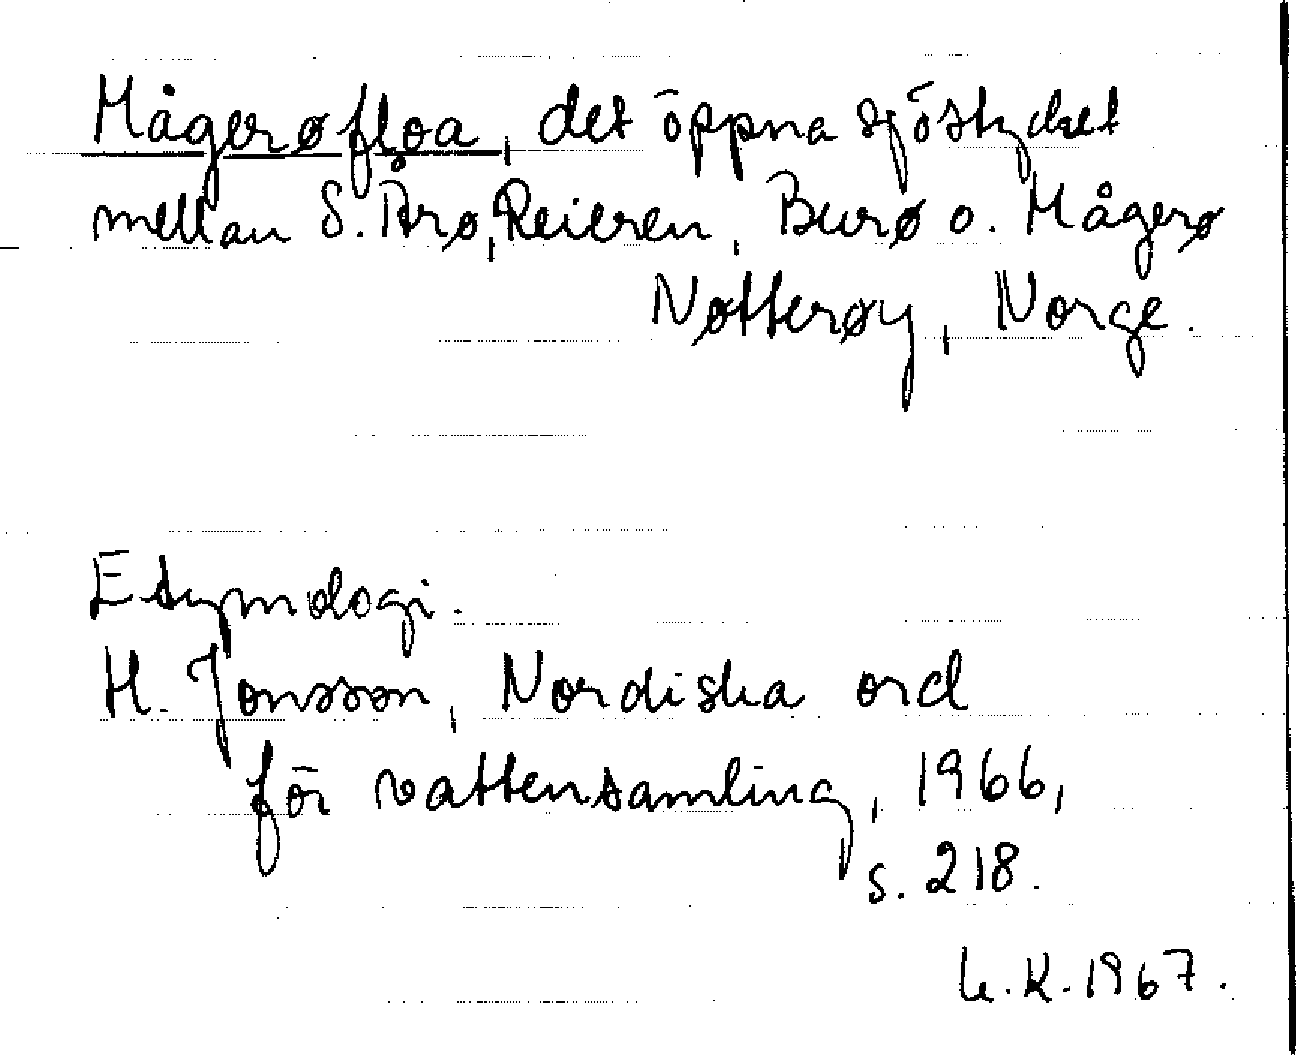 Mågerøfloa, det öppna sjöstycket
mellan S. Årø, Reieren, Burø o. Mågerø
Nøtterøy, Norge.
Etymologi.
H. Jonsson, Nordiska ord
för vattensamling, 1966,
s. 218.
L.K. 1967.